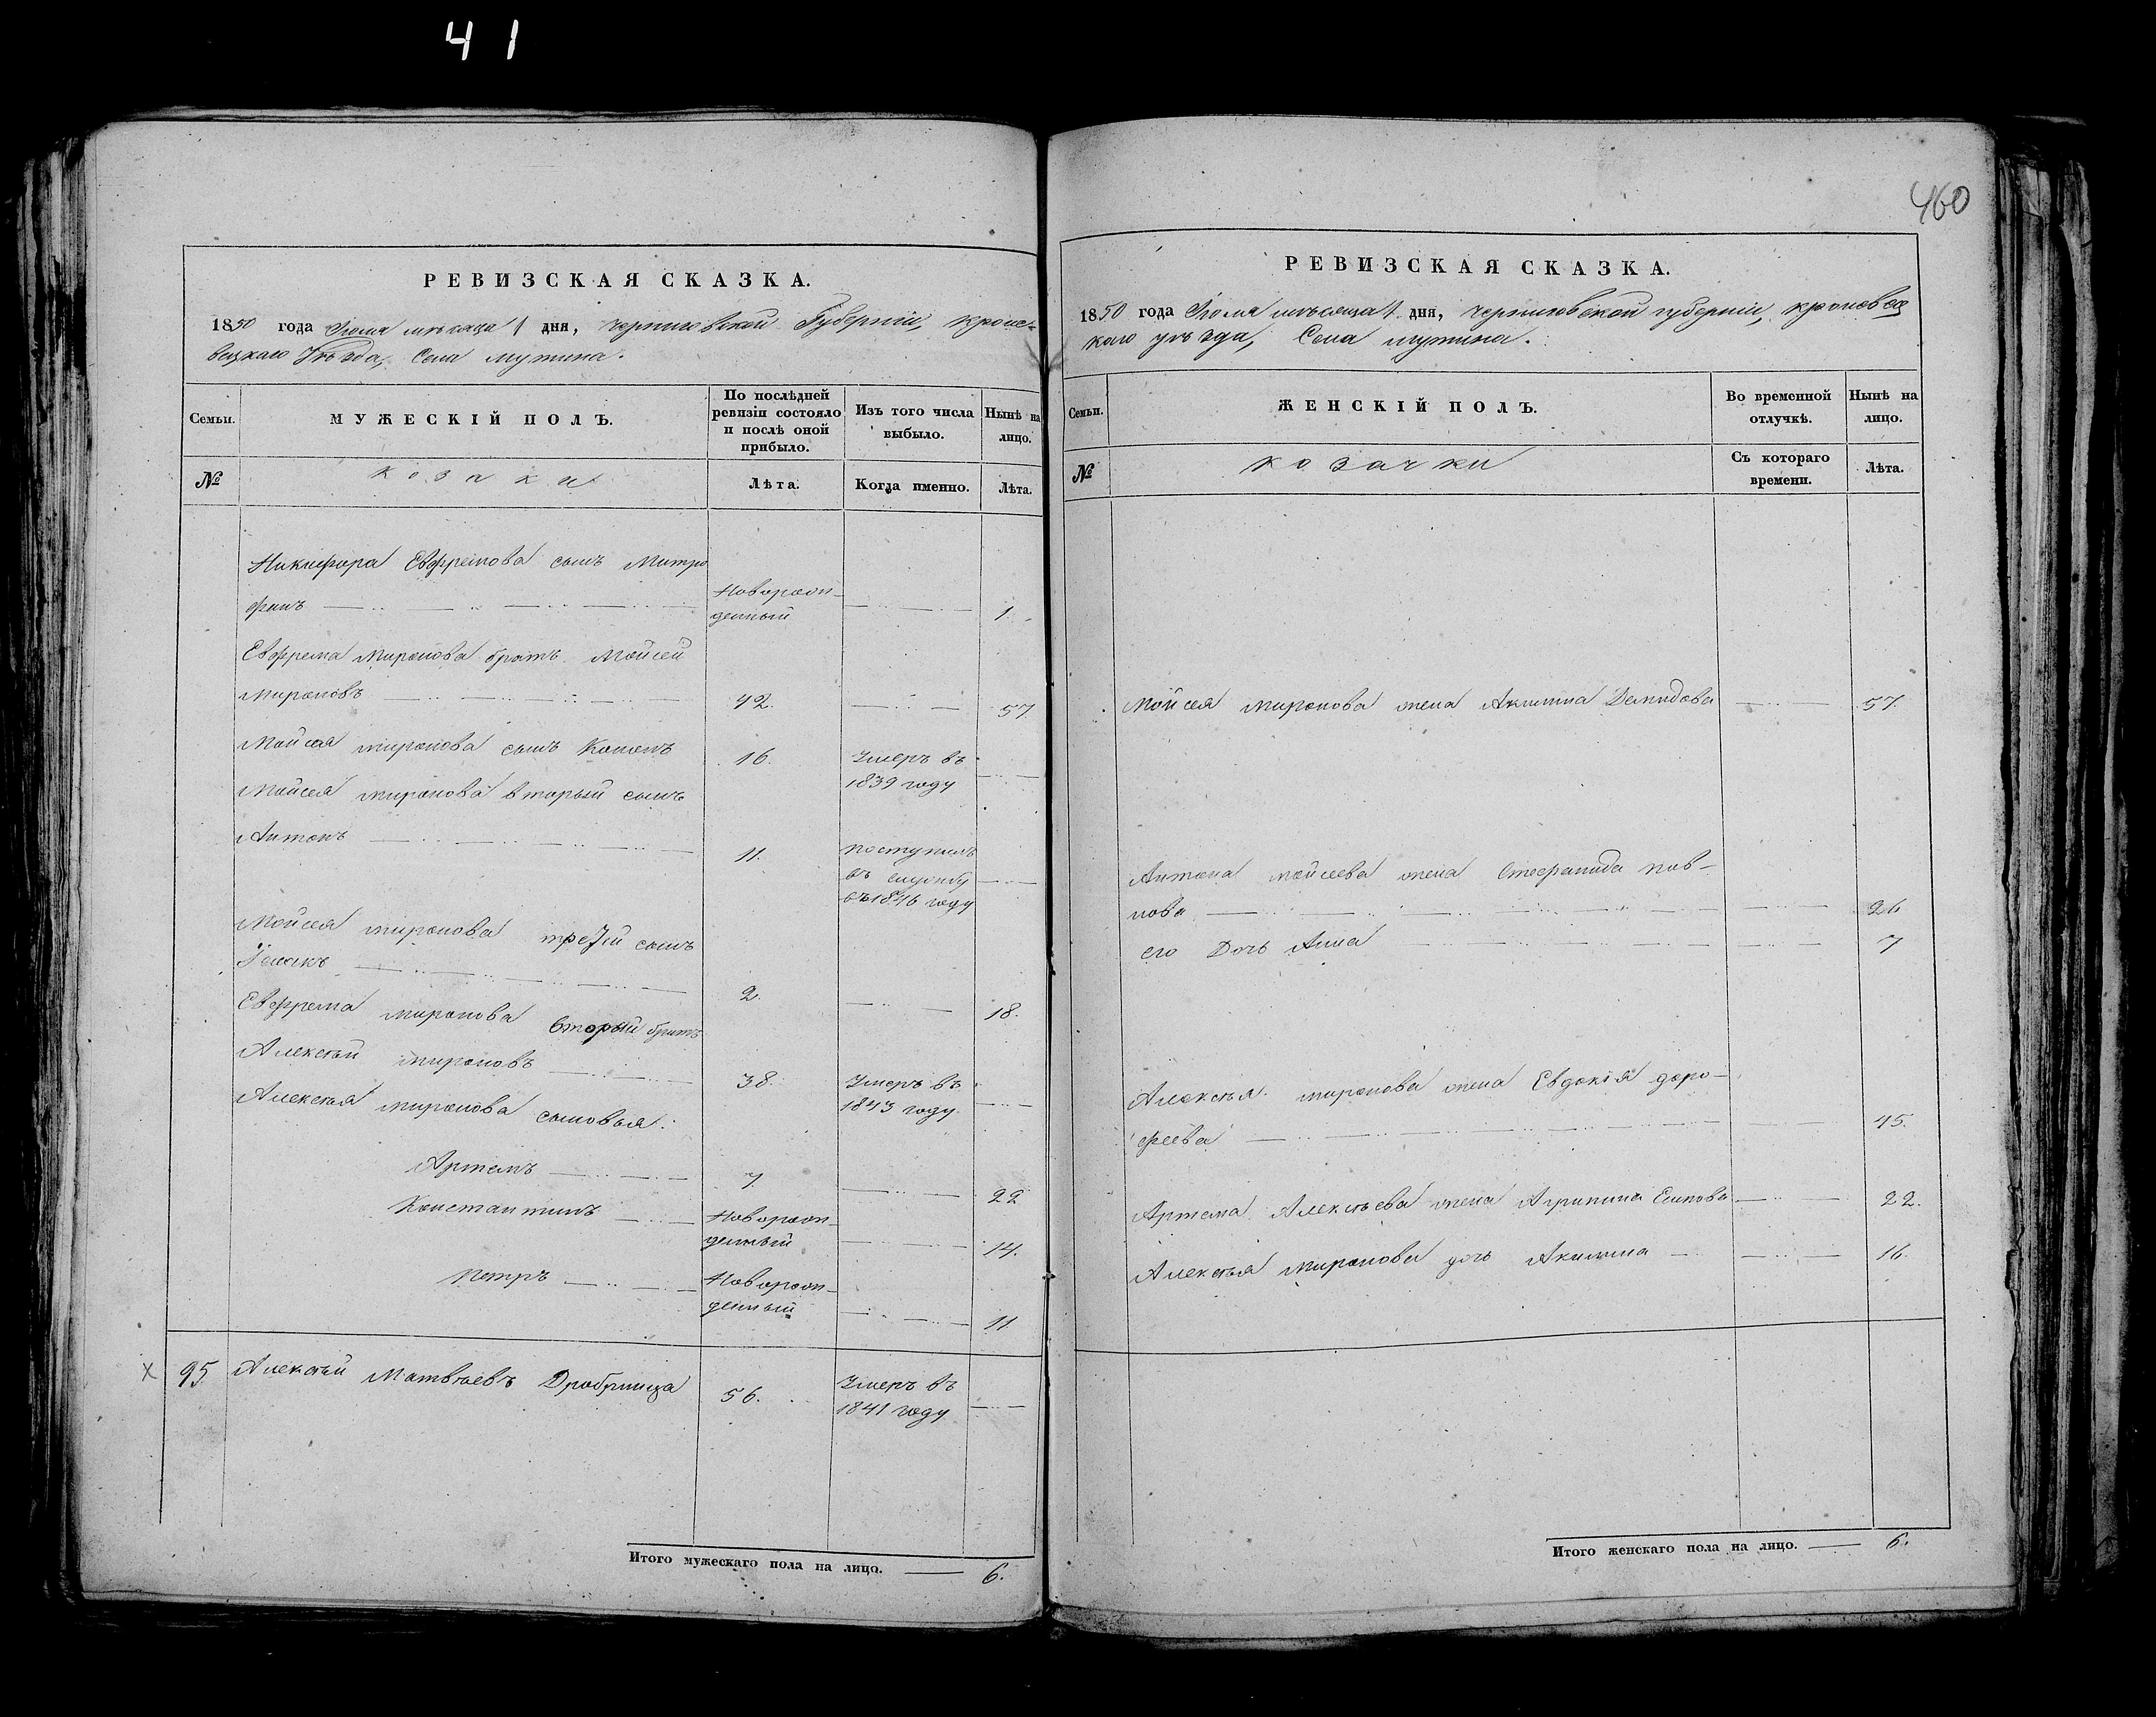 41
460
РЕВИЗСКАЯ СКАЗКА.
1850 года Іюля мѣсяца 1 дня, Черниговской Губерніи, Кроле-
вецкаго Уѣзда, Села Мутина.
Семьи. МУЖЕСКІЙ ПОЛЪ. По послѣдней ревизіи состояло и послѣ оной прибыло. Изъ того числа выбыло. Нынѣ на лицо.
№ Козаки Лѣта. Когда именно. Лѣта.
Никифора Евфремова сынъ Митро
фанъ Новорож-
денный 1.
Евфрема Миронова братъ Мойсей
Мироновъ 42. 57.
Мойсея Миронова сынъ Кононъ 16. Умеръ въ
1839 году
Мойсея Миронова вторый сынъ
Антонъ 11. поступилъ
въ службу
въ 1846 году
Мойсея Миронова третій сынъ
Исаакъ 2. 18.
Евфрема Миронова вторый братъ
Алексѣй Мироновъ 38. Умеръ въ
1843 году
Алексѣя Миронова сыновья:
Артемъ 7. 22
Константинъ Новорож-
денный 14.
Петръ Новорож-
денный 11
х 95 Алексѣй Матвѣевъ 56. Умеръ въ
1841 году
Итого мужескаго пола на лицо. 6.
РЕВИЗСКАЯ СКАЗКА.
1850 года Іюля мѣсяца 1 дня, Черниговской губерніи, Кролевец
каго уѣзда, Села Мутина.
Семьи. ЖЕНСКІЙ ПОЛЪ. Во временной отлучкѣ. Нынѣ на лицо.
№ Козачки Съ котораго времени. Лѣта.
Мойсея Миронова жена Акилина Демидова 57.
Антона Мойсеева жена Стефанида
26
его Дочь Анна 7
Алексѣя Миронова жена Евдокія Доро-
феева 45.
Артема Алексѣева жена Агрипина 22.
Алексѣя Миронова дочь Акилина 16.
Итого женскаго пола на лицо. 6.